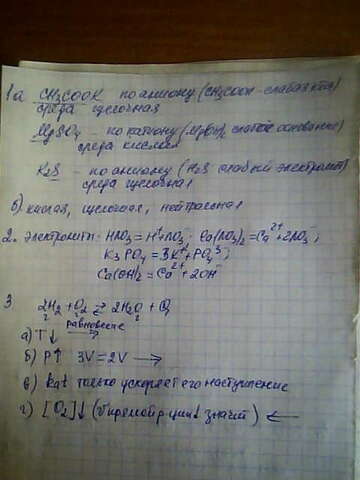 1а CH3COOK по аниону (CH3COOH - слабая к-та)
среда щелочная
MgSO4 - по катиону (Mg(OH)2 слабое основание)
среда кислая
K2S - по аниону (H2S слабый электролит)
среда щелочная
б) кислая, щелочная, нейтральная
2. Электролиты: HNO3 = H+ + NO3-; Ca(NO3)2 = Ca2+ + 2NO3-;
K3PO4 = 3K+ + PO4 3-;
Ca(OH)2 = Ca2+ + 2OH-
3 2H2 + O2 ⇄ 2H2O + Q
г г г
равновесие
а) T↓ →
б) P↑ 3V = 2V →
в) kat только ускоряет его наступление
г) [O2]↓ ( значит) ←